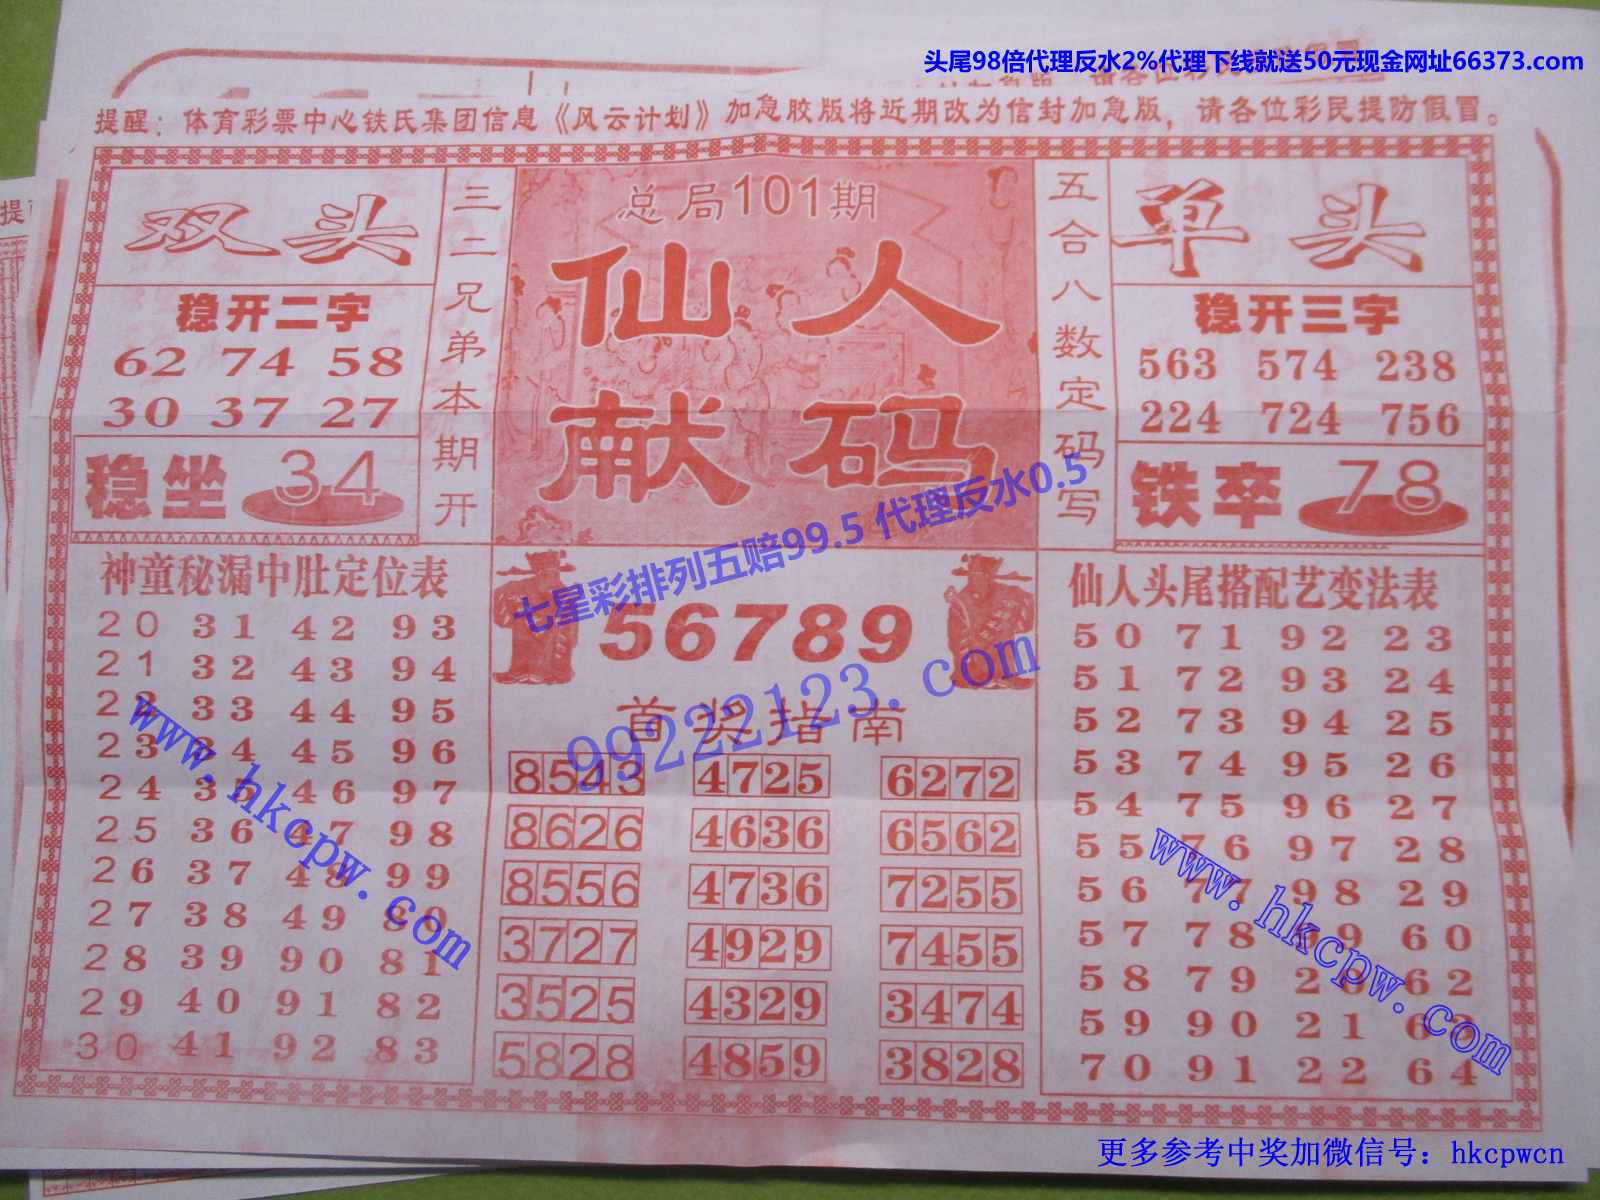 头尾98倍代理反水2%代理下线就送50元现金网址66373.com
提醒：体育彩票中心铁氏集团信息《风云计划》加急胶版将近期改为信封加急版，请各位彩民提防假冒。
双头
稳开二字
62 74 58
30 37 27
稳坐 34
三二兄弟本期开
总局101期
仙人
献码
五合八数定码写
单头
稳开三字
563 574 238
224 724 756
铁卒 78
七星彩排列五赔99.5 代理反水0.5
99222123.com
神童秘漏中肚定位表
20 31 42 93
21 32 43 94
22 33 44 95
23 34 45 96
24 35 46 97
25 36 47 98
26 37 48 99
27 38 49 80
28 39 90 81
29 40 91 82
30 41 92 83
www.hkcpw.com
56789
首奖指南
8543 4725 6272
8626 4636 6562
8556 4736 7255
3727 4929 7455
3525 4329 3474
5828 4859 3828
仙人头尾搭配艺变法表
50 71 92 23
51 72 93 24
52 73 94 25
53 74 95 26
54 75 96 27
55 76 97 28
56 77 98 29
57 78 99 60
58 79 20 62
59 90 21 63
70 91 22 64
www.hkcpw.com
更多参考中奖加微信号：hkcpwcn